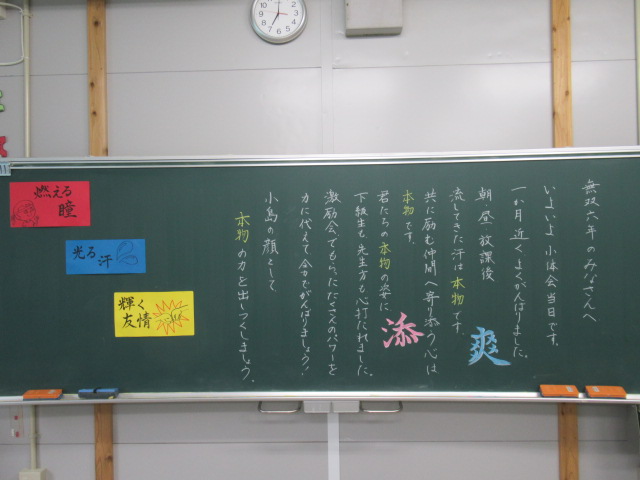 無双六年のみなさんへ
いよいよ小体会当日です。
一か月近くよくがんばりました。
朝 昼 放課後
流してきた汗は本物です。
爽
共に励む仲間へ寄り添う心は
本物です。
君たちの本物の姿に
添
下級生も先生方も心打たれました。
激励会でもらったたくさんのパワーを
力に代えて全力でがんばりましょう！
小島の顔として
本物の力を出しつくしましょう。
燃える
瞳
光る
汗
輝く
友情